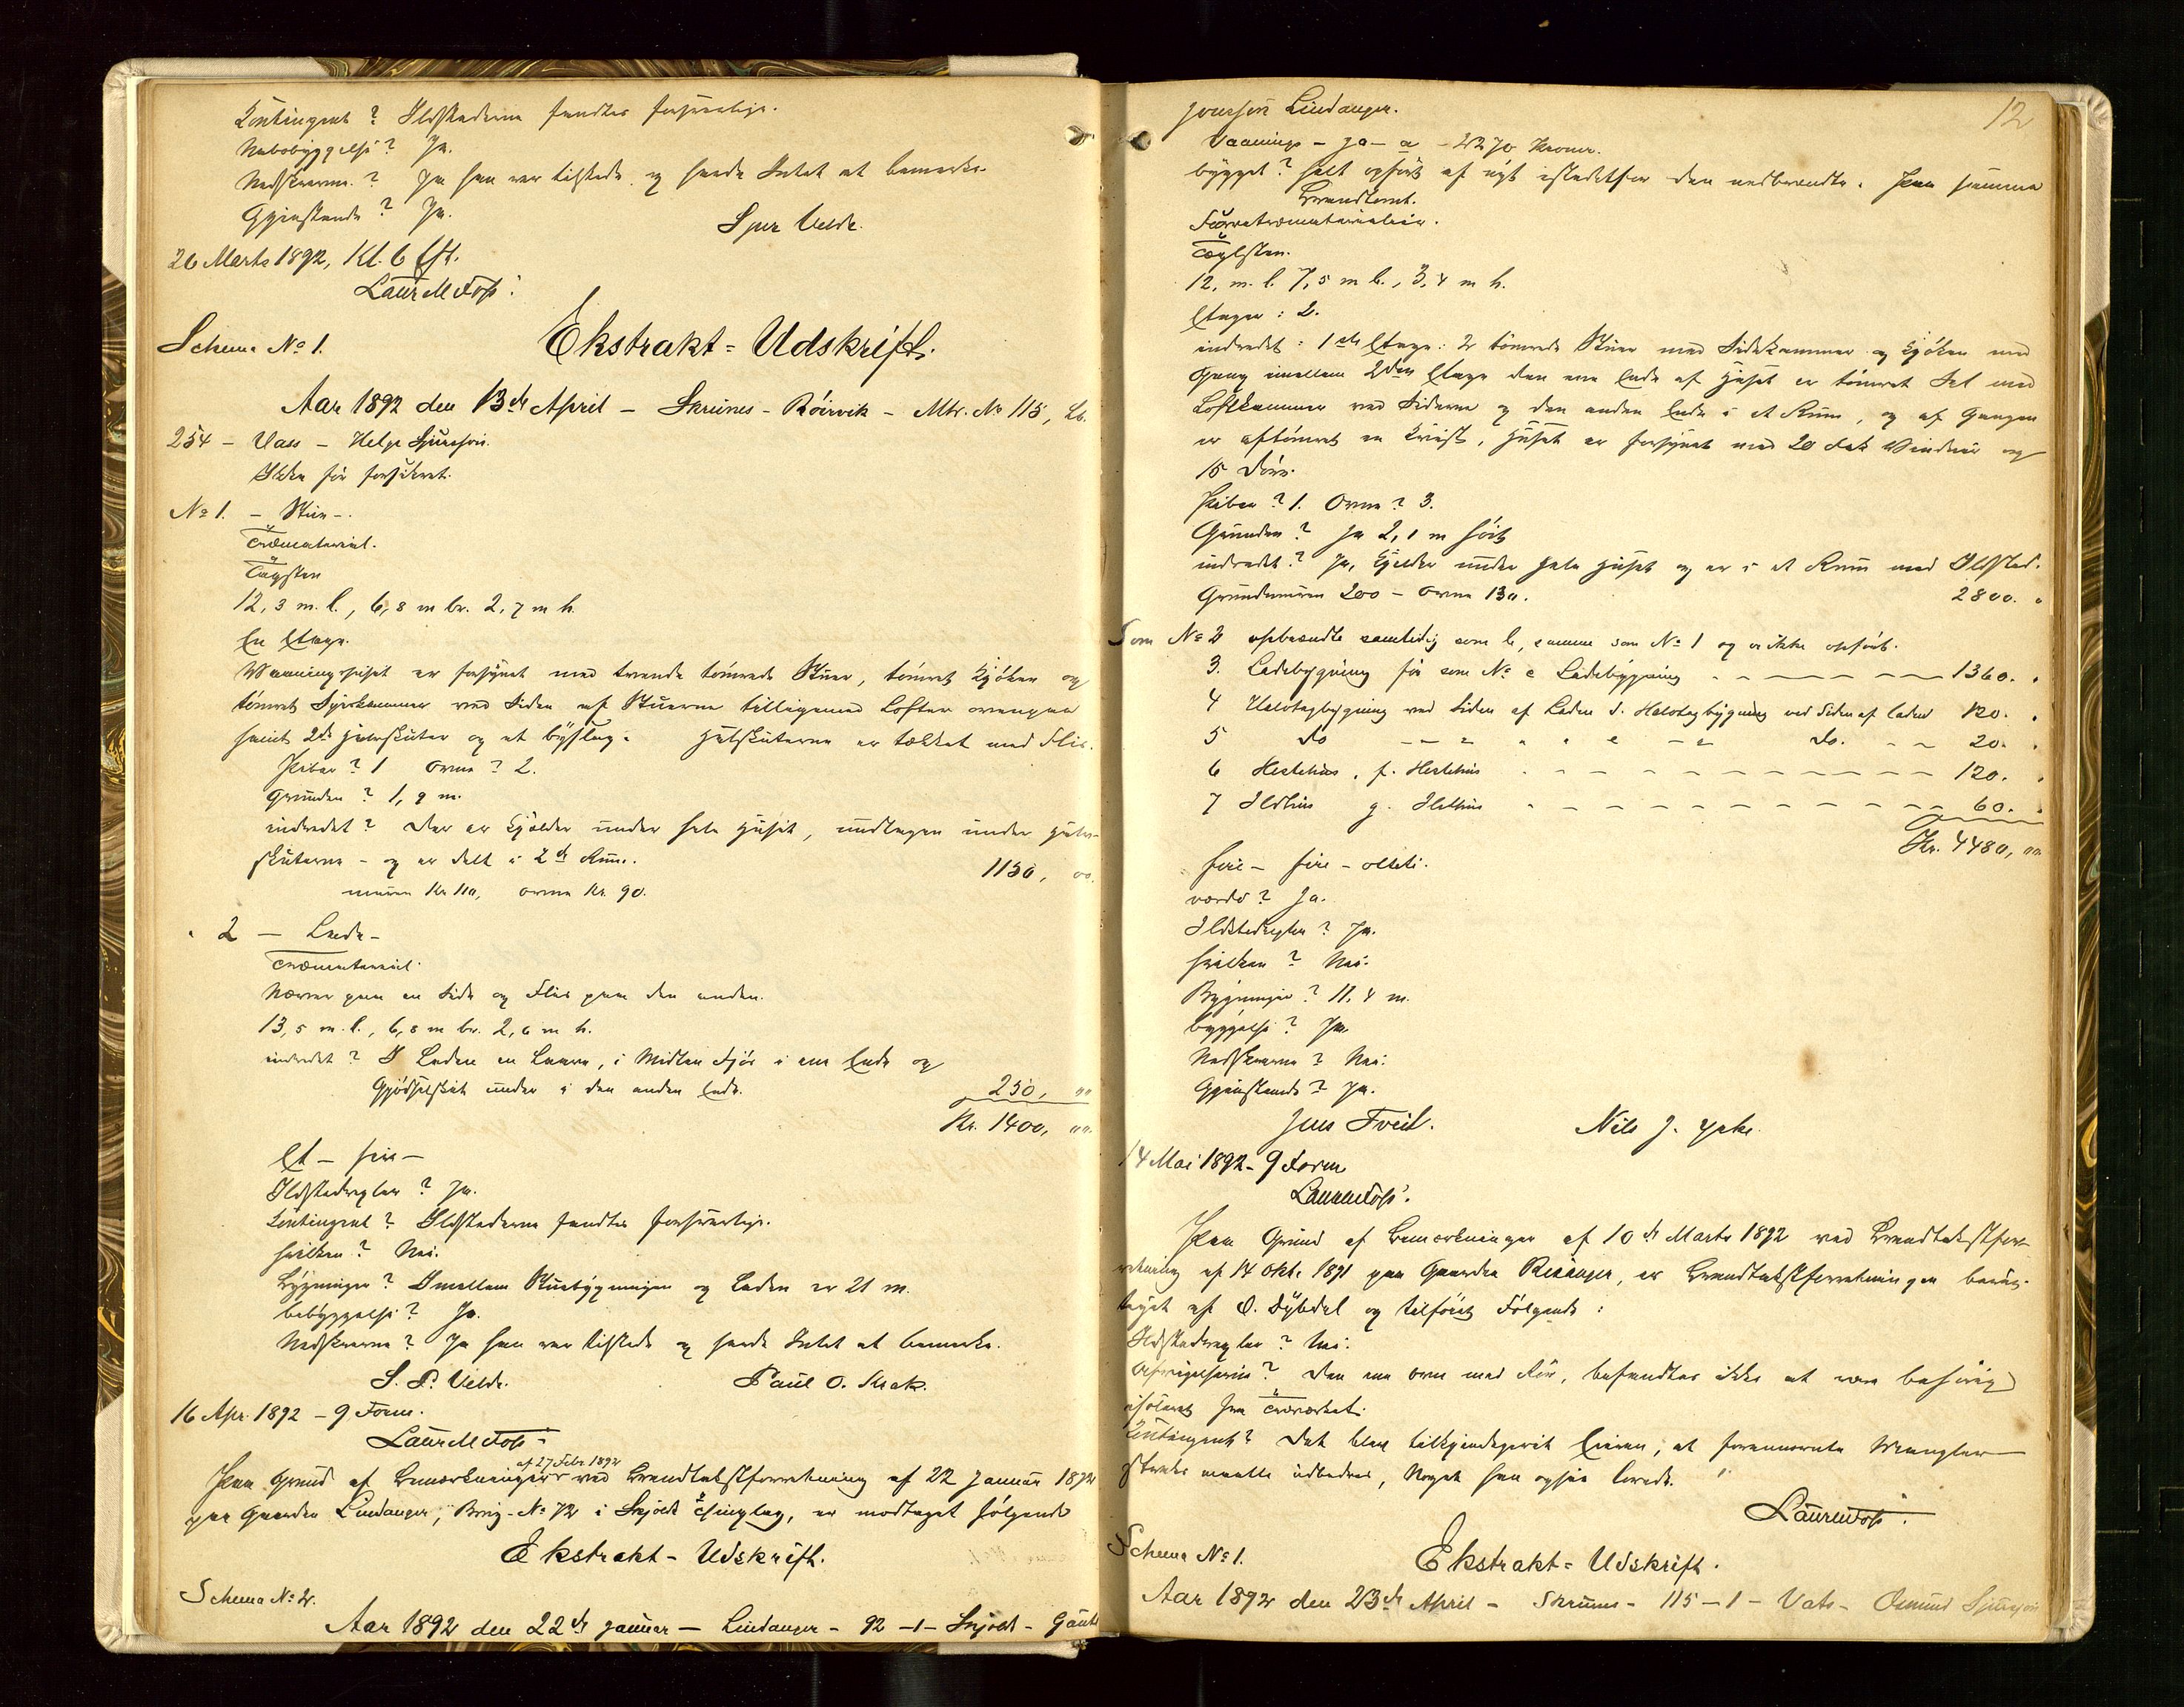 Kontingent? Ildstederne fandtes forsvarlige.
Nabobyggelse? Ja.
Nedskrevne? Ja han var tilstede og havde Intet at bemærke.
Gjenstande? Ja.
Sjur Velde.
26 Marts 1892, Kl. 6 Eft.
Laur M Foss.
Schema No 1. Ekstrakt-Udskrift.
Aar 1892 den 13de April – Skrunes – Röirvik – Mtr. No 115, Lb.
254 – Vass – Helge Sjursson.
Ikke för forsikret.
No 1. – Stue –.
Træmaterial.
Tagsten
12,3 m. l., 6,8 m br. 2,7 m h.
En Etage.
Vaaningshuset er forsynet med tvende tömrede Stuer, tömret Kjöken og
tömret Sideskammer ved Siden af Stuerne tilligemed Lofter ovenpaa
samt 2de Halvskuter og et bislag. Halvskuterne er tækket med Flis.
Piber? 1 Ovne? 2.
Grunden? 1,9 m.
indredet? Der er Kjælder under hele Huset, undtagen under Halv-
skuterne – og er delt i 2de Rum. 1150, 00.
muren Kr. 110, ovne Kr. 90.
2 – Lade –
Træmaterial.
Næver paa en Side og Flis paa den anden.
13,5 m. l., 6,8 m br. 2,6 m h.
indredet? I Laden en Laave, i Midten Fjös i ene Ende og
Gjödselskut under i den anden Ende. 250, ""
Kr. 1400, "".
Et – fire –
Ildstedregler? Ja.
Kontingent? Ildstederne fandtes forsvarlige.
hvilken? Nei.
Bygninger? Imellem Stuebygningen og Laden er 21 m.
bebyggelse? Ja.
Nedskrevne? Ja han var tilstede og havde Intet at bemærke.
S. P. Velde. Paul O. Skak.
16 Apr. 1892 – 9 Form.
Laur M Foss
af 27 Febr. 1892
Paa Grund af Bemærkninger ved Brandtakstforretning af 22 Januar 1892
paa Gaarden Lindanger, Brug-No 72 i Skjold Thinglag, er modtaget fölgende
Ekstrakt-Udskrift.
Schema No 2.
Aar 1892 den 22de Januar – Lindanger – 92 – 1 – Skjold – Gaute
12
Jonsson Lindanger.
Vaanings – ja – a – 2270 Kroner.
bygget? helt opført af nyt istedetfor den nedbrændte. Paa samme
Brandtomt.
Furretræmaterialier.
Taglsten.
12, m. l. 7,5 m b., 3,4 m h.
Etager: 2.
indredet: 1ste Etage: 2 tömrede Stuer med Sidekammer og Kjöken med
Gang imellem 2den Etage den ene Ende af Huset er tömret Sal med
Loftkammer ved Siderne og den anden Ende i et Rum, og af Gangen
er aftömret en Kvist, Huset er forsynet med 20 Fak Vinduer og
15 Döre.
Piber? 1. Ovne? 3.
Grunden? Ja 2,1 m höit
indredet? Ja, Kjelder under hele Huset og er i et Rum med Ildsted.
Grundmuren 200 – ovne 130. 2800. "
Som No 2 opbrændte samtidig som b, samme som No 1 og er ikke opfört.
3. Ladebygning för som No c Ladebygning – – – – – 1360. "
4 Halvtagbygning ved Siden af Laden d. Halvtagbygning ved Siden af laden 120. "
5 do – – " " " e – – do. – – 20. "
6 Hestehus, f. Hestehus – – – – – – 120. "
7 Ildhus g. Ildhus – – – – – – 60. "
Kr. 4480, "".
fire – fire – otteti.
værdi? Ja.
Ildstedregler? Ja.
hvilken? Nei.
Bygninger? 11,4 m.
byggelse? Ja.
Nedskrevne? Nei.
Gjenstande? Ja.
Jens Tveit. Nils J.
14 Mai 1892 – 9 Form
Laur M Foss.
Paa Grund af Bemærkninger af 10de Marts 1892 ved Brandtakstfor-
retning af 14 Oktr. 1891 paa Gaarden Risanger, er Brandtakstforretningen
af O. Dybdal og tilfört Fölgende:
Ildstedregler? Nei.
Afvigelserne? Den ene ovn med Rör, befandtes ikke at være behörig
isoleret fra Træværket.
Kontingent? Det blev tilkjendegivet Eieren, at forannævnte Mangler
straks maatte udbedres, Noget han ogsaa lovede.
Laur M Foss.
Schema No 1. Ekstrakt-Udskrift.
Aar 1892 den 23de April – Skrunes – 115 – 1 – Vats – Osmund Sjursson